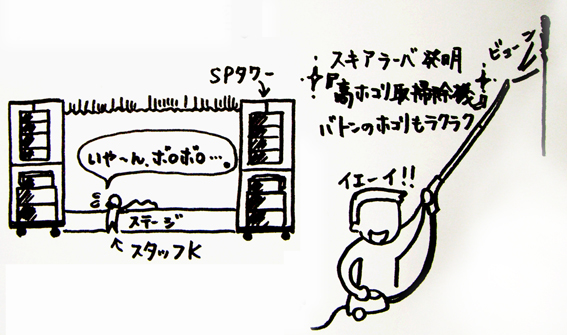 SPタワー
いや〜ん、ボロボロ…。
ステージ
スタッフK
スキアラーバ発明
『高ホコリ取掃除機』
バトンのホコリもラクラク
ビューン
イエーイ!!